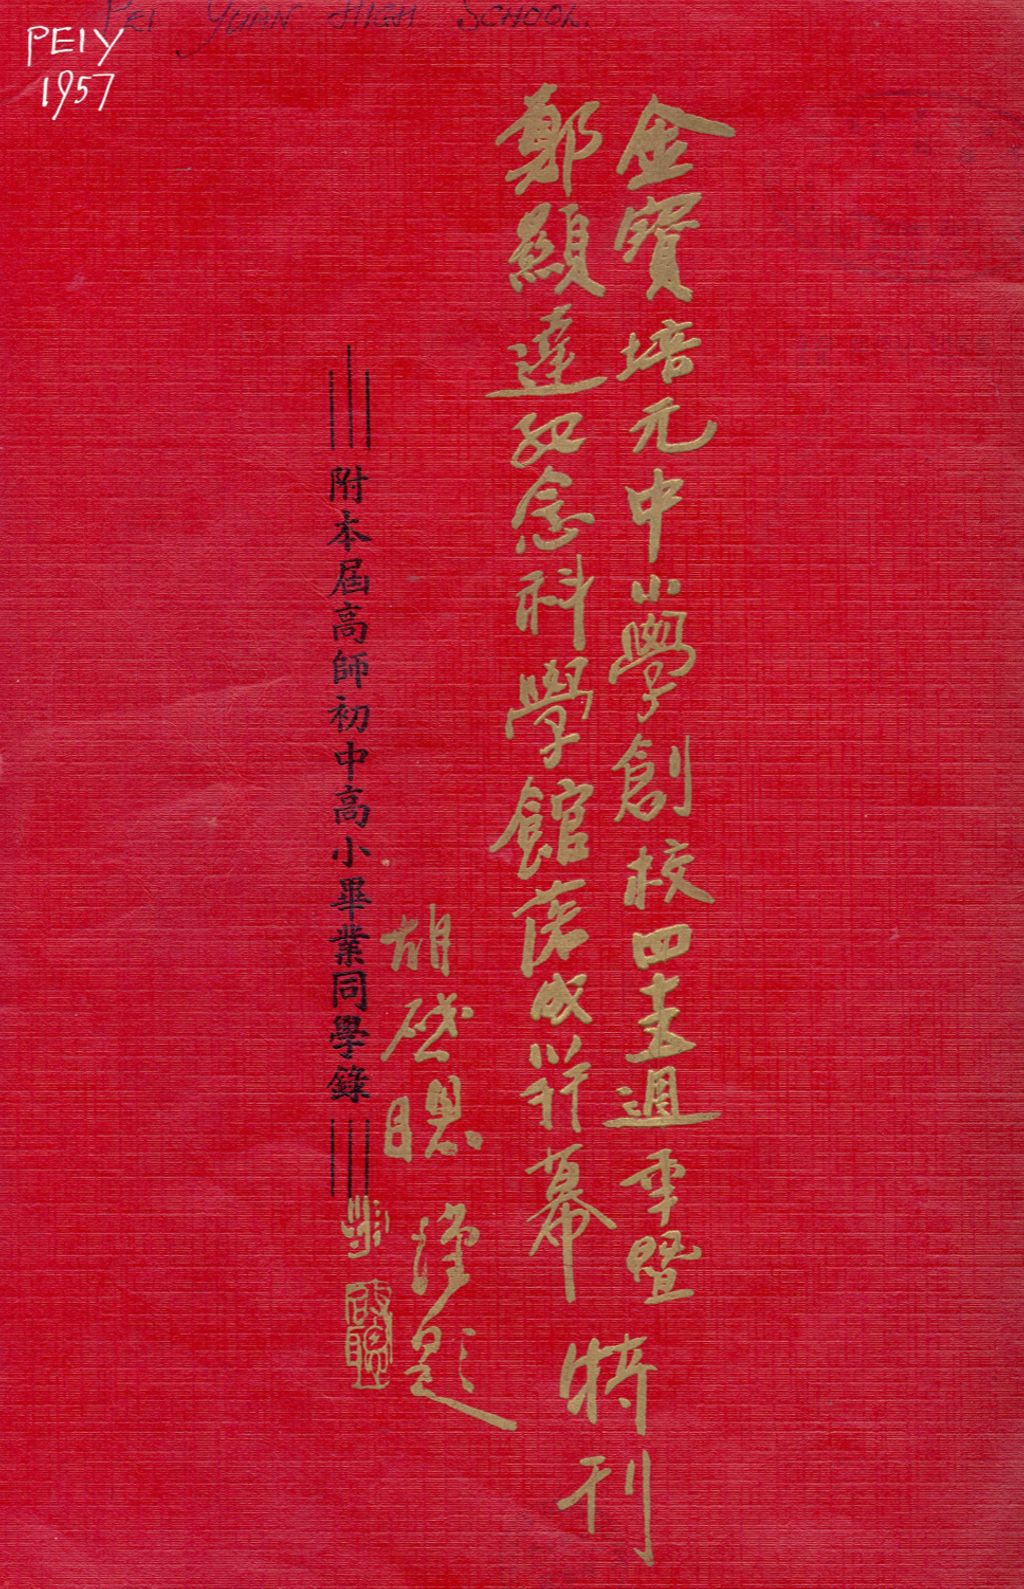 PEI YUAN HIGH SCHOOL.
PEIY
1957
金寶培元中小學創校四十五週年暨
鄭顯達紀念科學館落成開幕
特刊
胡啟聰 謹題
附本屆高師初中高小畢業同學錄